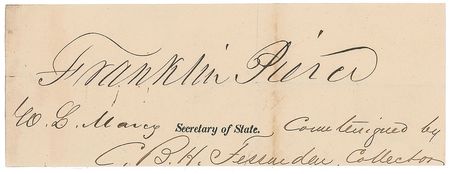 Franklin Pierce
W. L. Marcy Secretary of State. Countersigned by
C. B. H. Fessenden, Collector